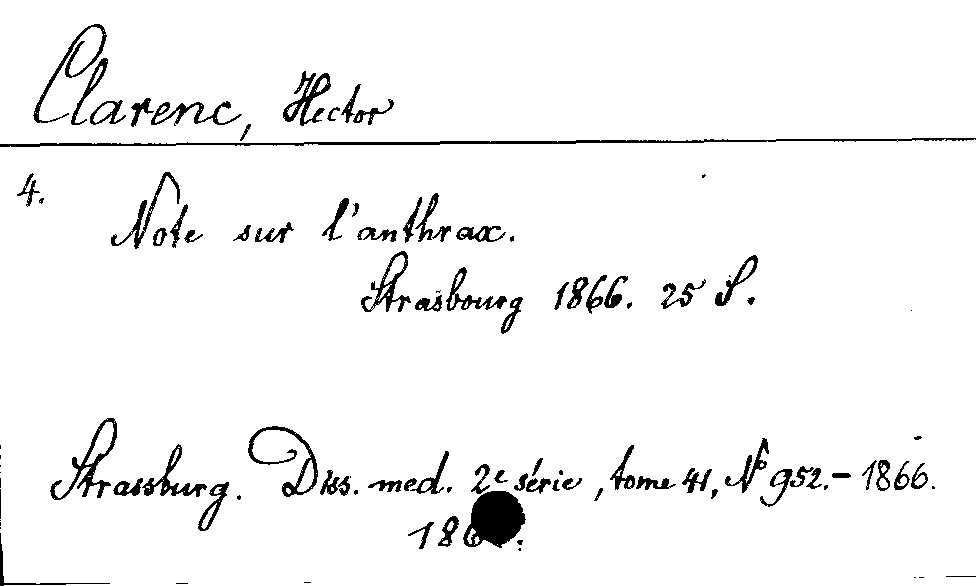 Clarenc, Hector
4.
Note sur l'anthrax.
Strasbourg 1866. 25 S.
Strassburg. Diss. med. 2e série, tome 41, No 952. - 1866.